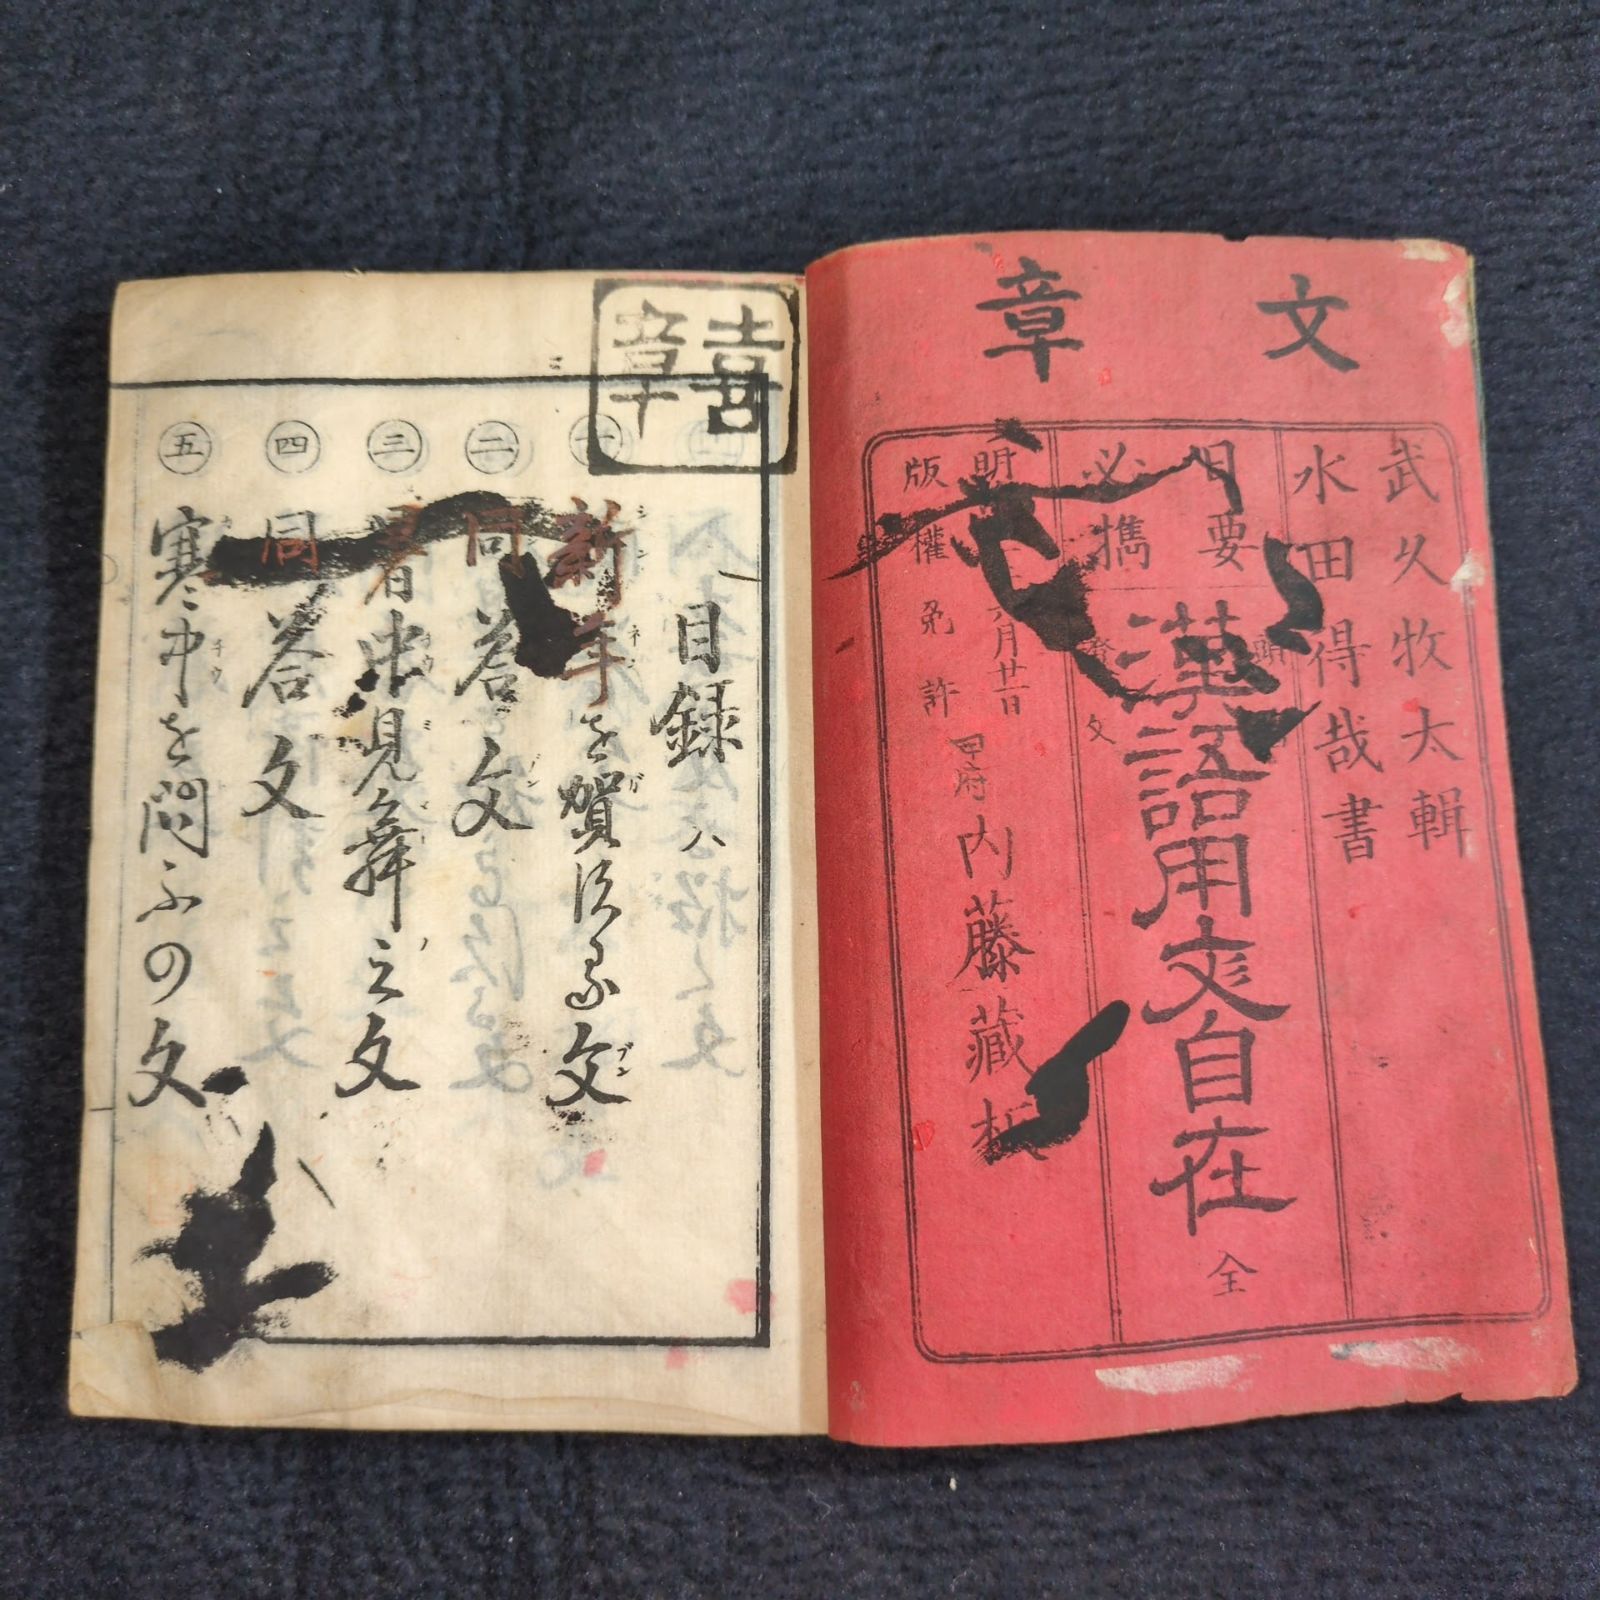 文章
武久牧太輯
水田得哉書
日用
必要
必携
漢語用文自在 全
六月廿一日
版權免許
甲府 内藤藏板
喜章
目録
㊀ 新年を賀する文
㊁ 同答文
㊂ 暑中見舞之文
㊃ 同答文
㊄ 寒中を問ふの文